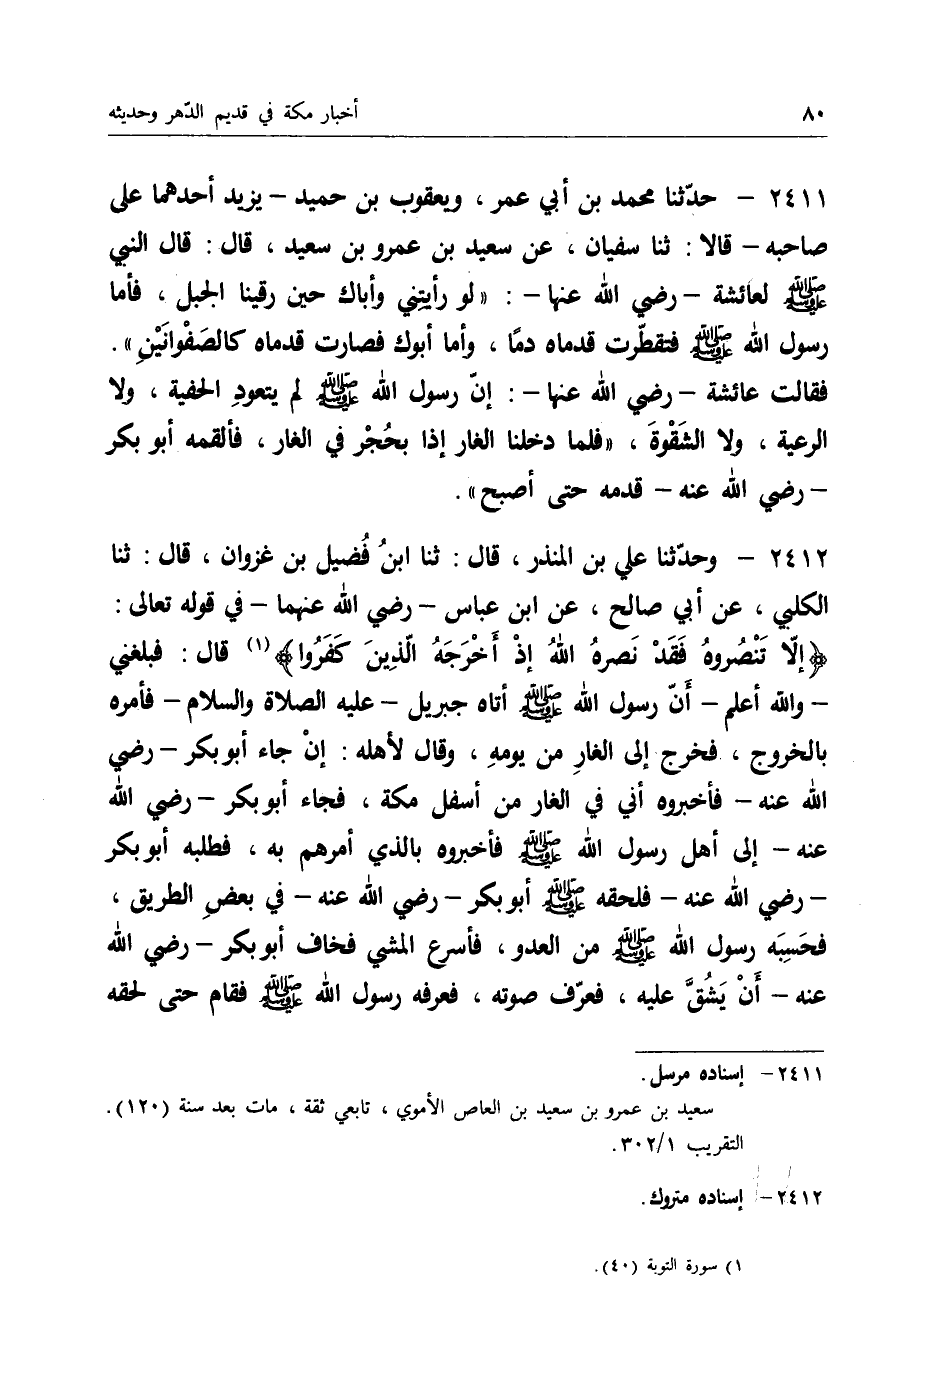 ٨٠ أخبار مكة في قديم الدّهر وحديثه
٢٤١١ – حدّثنا محمد بن أبي عمر ، ويعقوب بن حميد – يزيد أحدهما على
صاحبه – قالا : ثنا سفيان ، عن سعيد بن عمرو بن سعيد ، قال : قال النبي
ﷺ لعائشة – رضي الله عنها – : «لو رأيتِني وأباك حين رقينا الجبل ، فأما
رسول الله ﷺ فتقطّرت قدماه دمًا ، وأما أبوك فصارت قدماه كالصَفْوانَيْنِ» .
فقالت عائشة – رضي الله عنها – : إنّ رسول الله ﷺ لم يتعودِ الحفية ، ولا
الرعية ، ولا الشَقْوةَ ، «فلما دخلنا الغار إذا بحُجْر في الغار ، فألقمه أبو بكر
– رضي الله عنه – قدمه حتى أصبح» .
٢٤١٢ – وحدّثنا علي بن المنذر ، قال : ثنا ابنُ فُضيل بن غزوان ، قال : ثنا
الكلبي ، عن أبي صالح ، عن ابن عباس – رضي الله عنهما – في قوله تعالى :
﴿إلّا تَنْصُروهُ فَقَدْ نَصرهُ اللهُ إذْ أَخْرَجَهُ الّذِينَ كَفَرُوا﴾(١) قال : فبلغني
– والله أعلم – أَنّ رسول الله ﷺ أتاه جبريل – عليه الصلاة والسلام – فأمره
بالخروج ، فخرج إلى الغارِ من يومهِ ، وقال لأهله : إنْ جاء أبو بكر – رضي
الله عنه – فأخبروه أني في الغار من أسفل مكة ، فجاء أبو بكر – رضي الله
عنه – إلى أهل رسول الله ﷺ فأخبروه بالذي أمرهم به ، فطلبه أبو بكر
– رضي الله عنه – فلحقه ﷺ أبو بكر – رضي الله عنه – في بعضِ الطريق ،
فحَسِبَه رسول الله ﷺ من العدو ، فأسرع المشي فخاف أبو بكر – رضي الله
عنه – أَنْ يَشُقَّ عليه ، فعرّف صوته ، فعرفه رسول الله ﷺ فقام حتى لحقه
٢٤١١ – إسناده مرسل .
سعيد بن عمرو بن سعيد بن العاص الأموي ، تابعي ثقة ، مات بعد سنة (١٢٠) .
التقريب ٣٠٢/١ .
٢٤١٢ – إسناده متروك .
١) سورة التوبة (٤٠) .